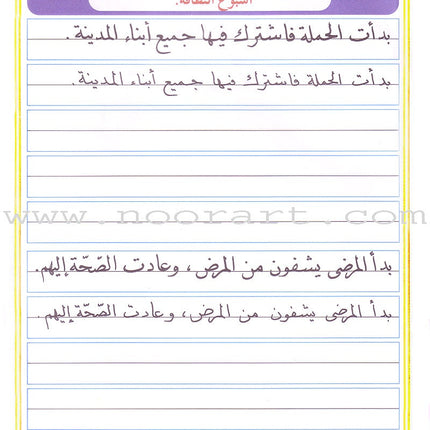 أسبوع النظافة.
بدأت الحملة فاشترك فيها جميع أبناء المدينة.
بدأت الحملة فاشترك فيها جميع أبناء المدينة.
www.noorart.com
بدأ المرضى يشفون من المرض، وعادت الصّحّة إليهم.
بدأ المرضى يشفون من المرض، وعادت الصّحّة إليهم.